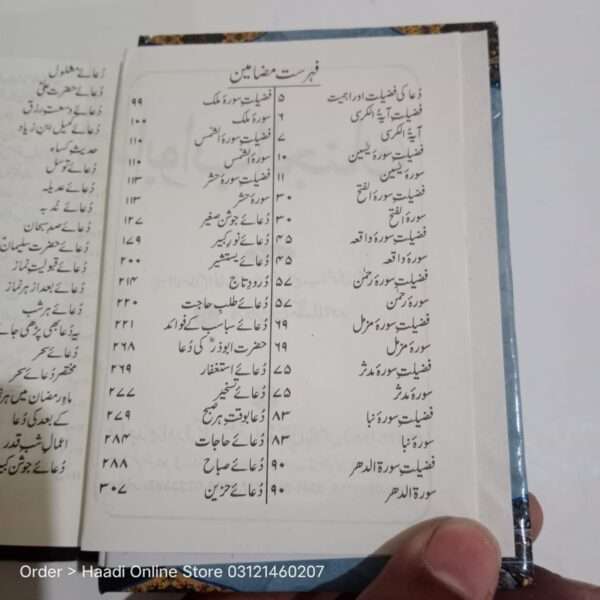 فہرست مضامین
دُعا کی فضیلت اور اہمیت ۵
فضیلت آیۃ الکرسی ۶
آیۃ الکرسی ۷
فضیلت سورۃ یٰسین ۱۰
سورۃ یٰسین ۱۱
فضیلت سورۃ الفتح ۳۰
سورۃ الفتح ۳۰
فضیلت سورۃ واقعہ ۴۵
سورۃ واقعہ ۴۵
فضیلت سورۃ رحمٰن ۵۷
سورۃ رحمٰن ۵۷
فضیلت سورۃ مزمل ۶۹
سورۃ مزمل ۶۹
فضیلت سورۃ مدثر ۷۵
سورۃ مدثر ۷۵
فضیلت سورۃ نبا ۸۳
سورۃ نبا ۸۳
فضیلت سورۃ الدھر ۹۰
سورۃ الدھر ۹۰
فضیلت سورۃ ملک ۹۹
سورۃ ملک ۱۰۰
فضیلت سورۃ الشمس ۱۱۰
سورۃ الشمس ۱۱۰
فضیلت سورۃ حشر ۱۱۳
سورۃ حشر ۱۱۳
دُعائے جوشن صغیر ۱۲۷
دُعائے نور کبیر ۱۷۹
دُعائے یستشیر ۲۰۰
دُرود تاج ۲۱۴
دُعائے طلب حاجت ۲۲۰
دُعائے سباسب کے فوائد ۲۲۱
حضرت ابوذرؓ کی دُعا ۲۶۸
دُعائے استغفار ۲۶۹
دُعائے تسخیر ۲۷۷
دُعا بوقت ہر صبح ۲۷۹
دُعائے حاجات ۲۸۴
دُعائے صباح ۲۸۸
دُعائے حزین ۳۰۷
دُعائے مشلول
دُعائے وسعت رزق
دُعائے کمیل ابن زیاد
حدیث کساء
دُعائے توسل
دُعائے عدیلہ
دُعائے صد سبحان
دُعائے حضرت سلیمان
دُعائے قبولیت نماز
دُعائے بعد از ہر نماز
دُعائے ہر شب
یہ دُعا بھی پڑھی جائے
دُعائے سحر
مختصر دُعائے سحر
ماہ رمضان میں ہر نماز
کے بعد کی دُعا
اعمال شب قدر
دُعائے جوشن کبیر
Order > Haadi Online Store 03121460207